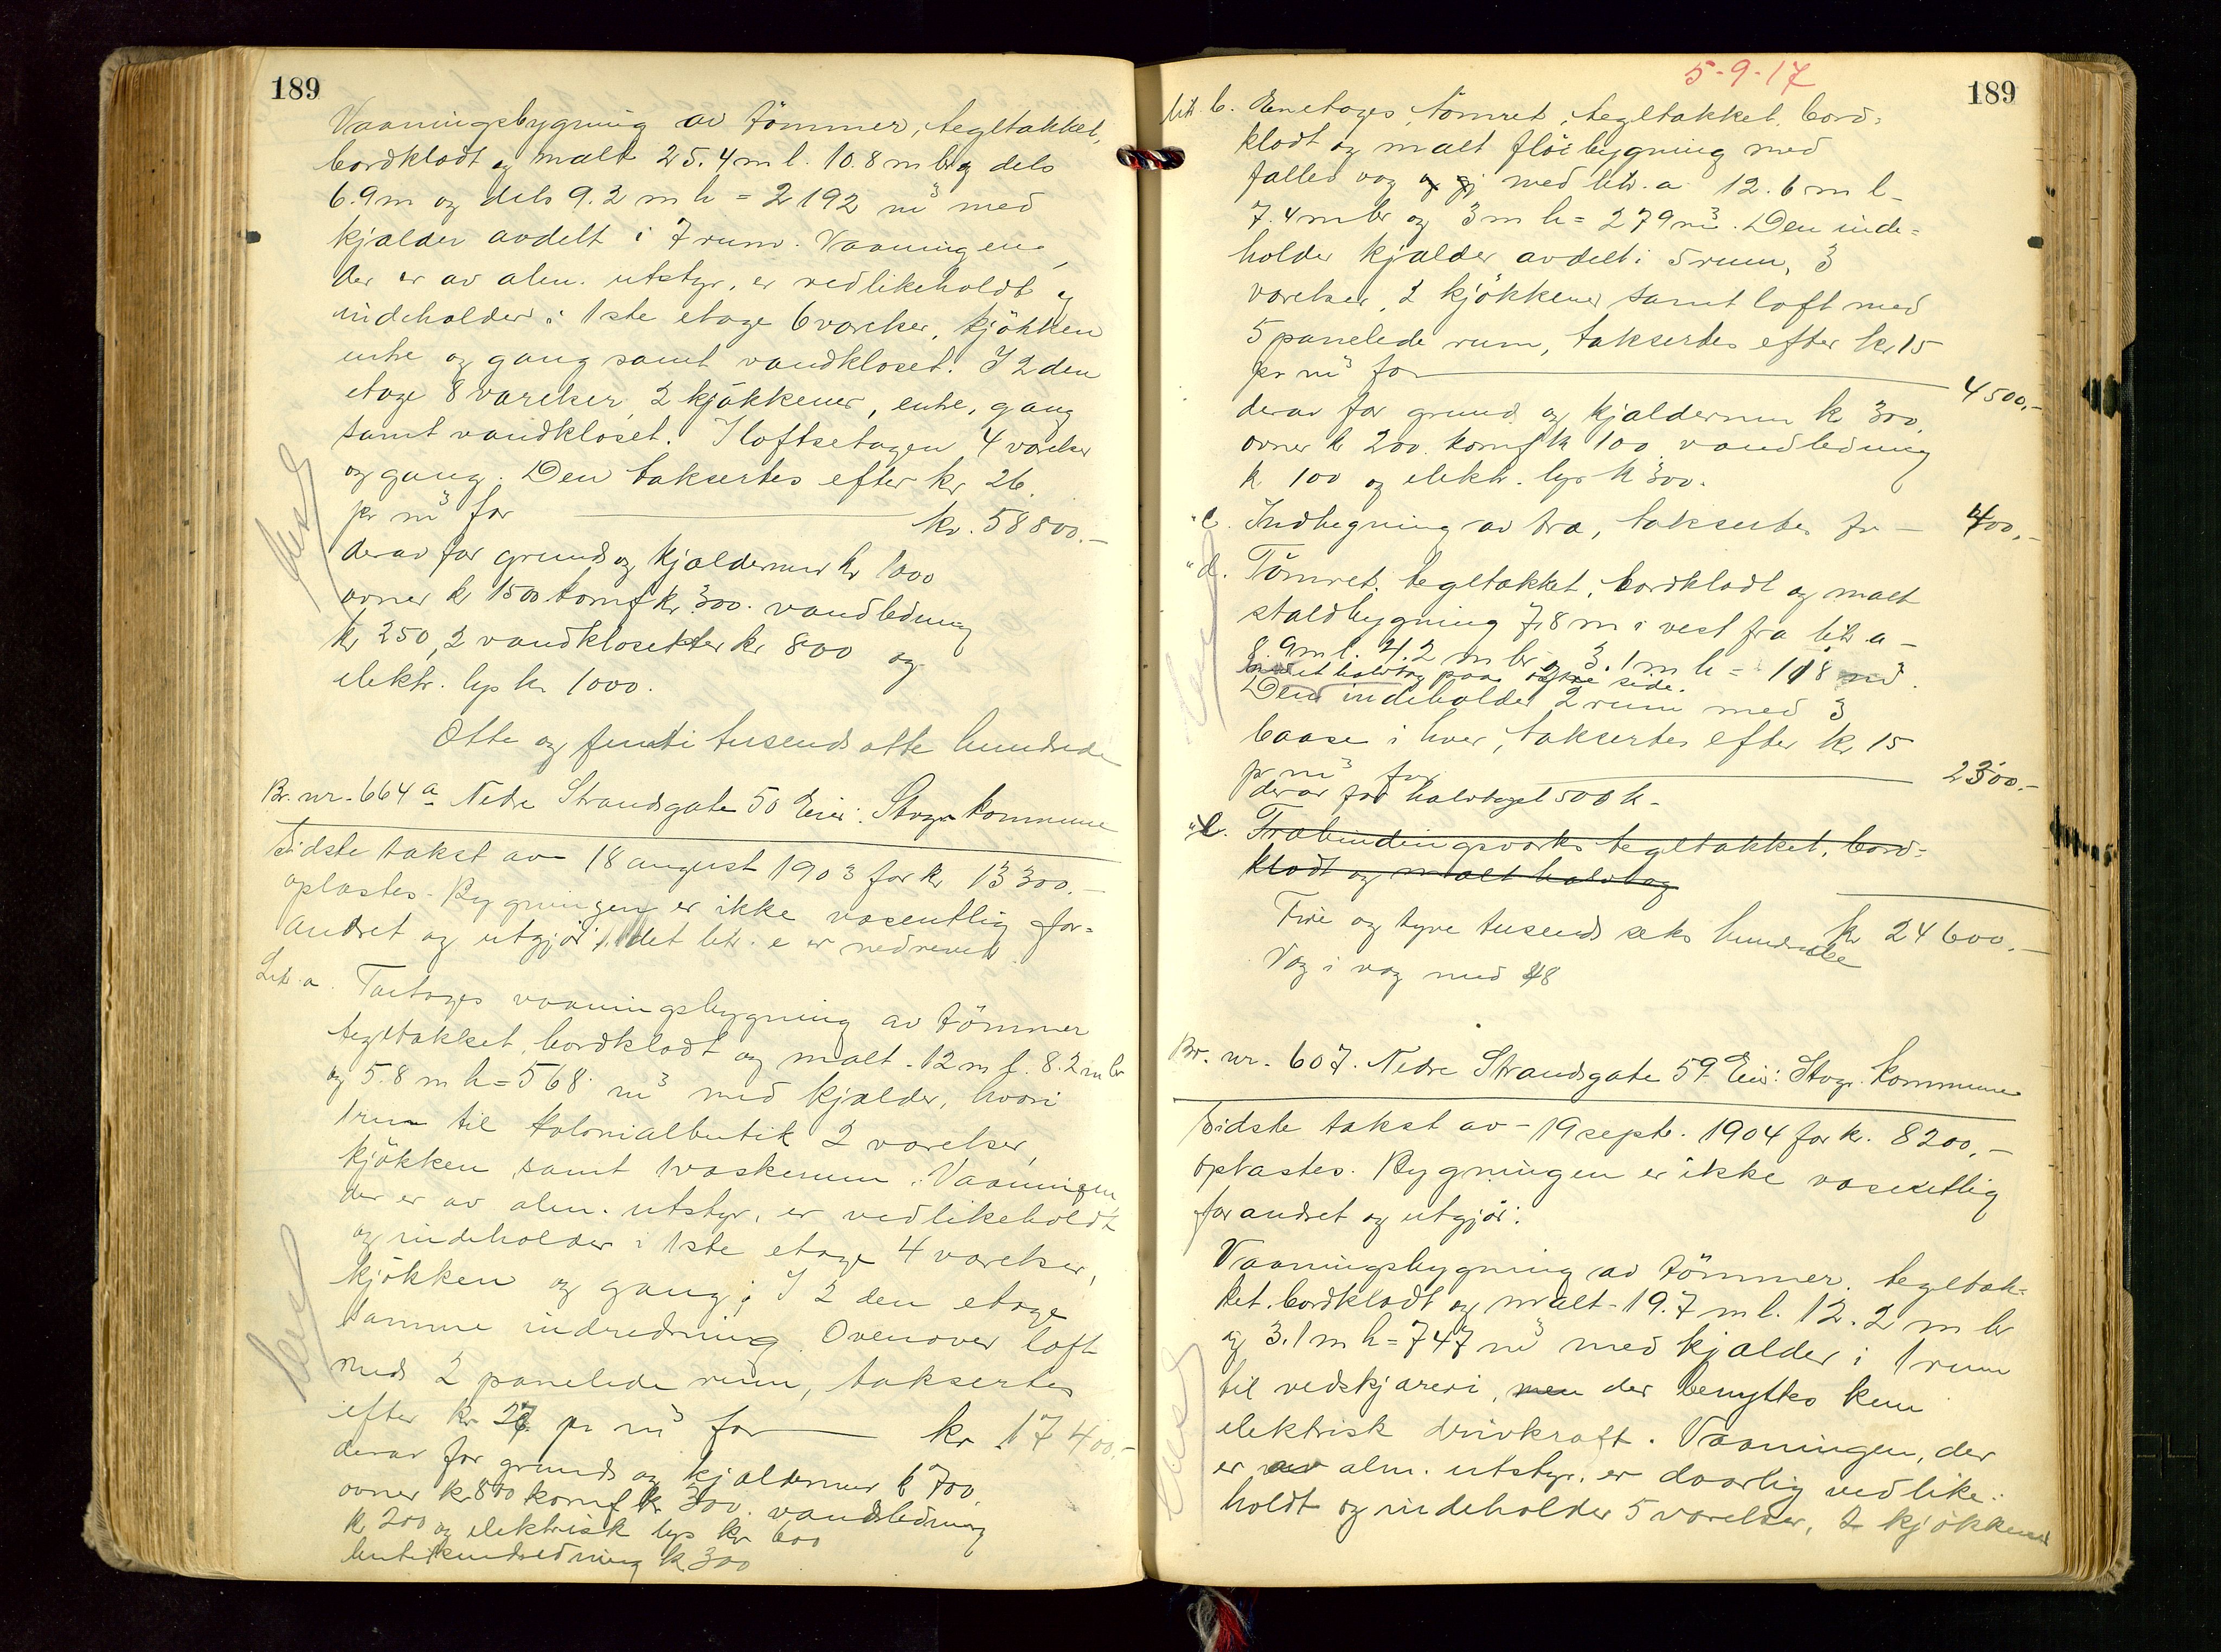 189
Vaaningsbygning av tömmer, tegltækket,
bordklædt og malt 25.4 m l. 10.8 m br og dels
6.9 m og dels 9.2 m h = 2192 m³ med
kjælder avdelt i 7 rum. Vaaningen,
der er av alm. utstyr, er vedlikeholdt og
indeholder i 1ste etage 6 værelser, kjökken
entre og gang samt vandkloset. I 2den
etage 8 værelser, 2 kjökkener, entre, gang
samt vandkloset. I loftsetagen 4 værelser
og gang. Den taksertes efter kr. 26
pr m³ for kr. 58800.-
derav for grund og kjælderrum kr 1000
ovner kr 1500 komf kr. 300. vandledning
kr 250, 2 vandklosetter kr 800 og
elektr. lys kr. 1000.
Otte og femti tusend otte hundrede
Br. nr. 664 a Nedre Strandgate 50 Eier: Stvgr kommune
Sidste takst av 18 august 1903 for kr 13300.-
oplæstes. Bygningen er ikke væsentlig for=
andret og utgjör, idet litr. e er nedrevet.
Litr. a. Toetages vaaningsbygning av tömmer
tegltækket, bordklædt og malt. 12 m l. 8.2 m br
og 5.8 m h = 568 m³ med kjælder, hvori
1 rum til kolonialbutik 2 værelser,
kjökken samt 1 vaskerum. Vaaningen
der er av alm. utstyr, er vedlikeholdt
og indeholder i 1ste etage 4 værelser,
kjökken og gang; I 2den etage
samme indredning. Ovenover loft
med 2 panelede rum, taksertes
efter kr 27 pr m³ for kr 17400.-
derav for grund og kjælderrum kr 700
ovner kr 800 komf kr 300. vandledning
kr 200 og elektrisk lys kr 600
butikindredning kr 300
5-9-17
189
litr. b. Enetages, tömret, tegltækket, bord=
klædt og malt flöibygning med
fælles væg og gj med litr. a. 12.6 m l
7.4 m br og 3 m h = 279 m³. Den inde=
holder kjælder avdelt i 5 rum, 3
værelser, 2 kjökkener samt loft med
5 panelede rum, taksertes efter kr 15
pr m³ for 4500.-
derav for grund og kjælderrum kr 300,
ovner kr 200. komf kr 100 vandledning
kr 100 og elektr. lys kr 300.
" c. Indhegning av træ, taksertes for - 400.-
" d. Tömret, tegltækket, bordklædt og malt
staldbygning 7.8 m i vest fra litr. a -
8.9 m l. 4.2 m br og 3.1 m h = 118 m³.
med et halvtag paa side.
Den indeholder 2 rum med 3
baase i hver, taksertes efter kr 15
pr m³ for 2300.-
derav for halvtaget 500 kr.
" e. Træbindingsverks tegltækket, bord=
klædt og malt halvtag
kr 24600.-
Fire og tyve tusend seks hundrede
Væg i væg med 48
Br. nr. 607. Nedre Strandgate 59 Eier: Stvgr. kommune
Sidste takst av 19 septr. 1904 for kr. 8200.-
oplæstes. Bygningen er ikke væsentlig
forandret og utgjör:
Vaaningsbygning av tömmer, tegltæk=
ket, bordklædt og malt - 19.7 m l. 12.2 m br
og 3.1 m h = 747 m³ med kjælder i 1 rum
til vedskjæreri, men der benyttes kun
elektrisk drivkraft. Vaaningen, der
er av alm. utstyr, er daarlig vedlike=
holdt og indeholder 5 værelser, 2 kjökkener